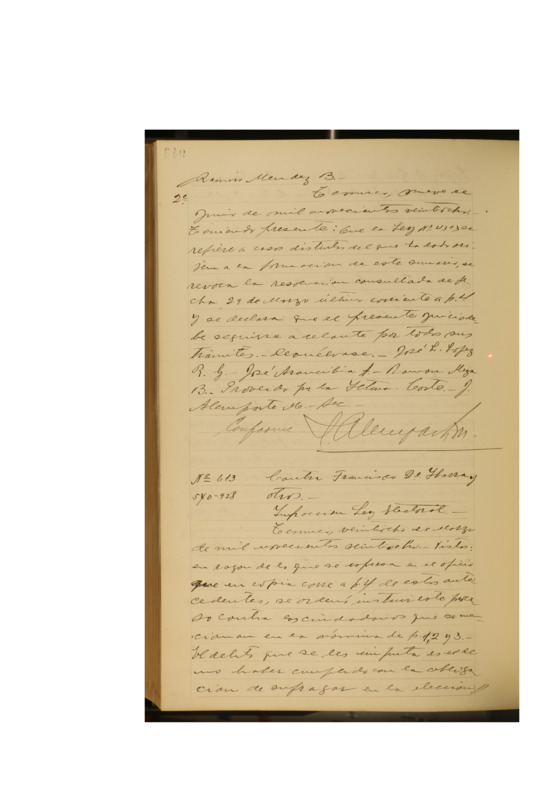 Ramón Mendez B.-
2ª Temuco, nueve de
Junio de mil novecientos veintiocho.-
Teniendo presente: Que la Ley Nº se
refiere a casos distintos del que ha dado orí-
jen a la formacion de este sumario, se
revoca la resolucion consultada de fe-
cha 29 de Marzo último corriente a f. 4
y se declara que el presente juicio de-
be seguirse adelante por todos sus
trámites.- Devuélvase.- José L. Lopez
R. G.- José Arancibia A- Ramon Meza
B.- Proveido por la Iltma. Corte.- J.
Alemparte M- Sec-
Conforme J. Alemparte M.
Nº 613 Contra Francisco De Ybarra y
540-928 otros.-
Infraccion Ley Electoral-
Temuco, veintiocho de Marzo
de mil novecientos veintiocho.- Vistos:
en razon de lo que se espresa en el oficio
que en copia corre a f. 4 de estos ante-
cedentes, se ordenó instruir este proce-
so contra los ciudadanos que se men-
cionan en la nómina de f. 1, 2 y 3.-
El delito que se les imputa es el de
no haber cumplido con la obliga-
cion de sufragar en la eleccion